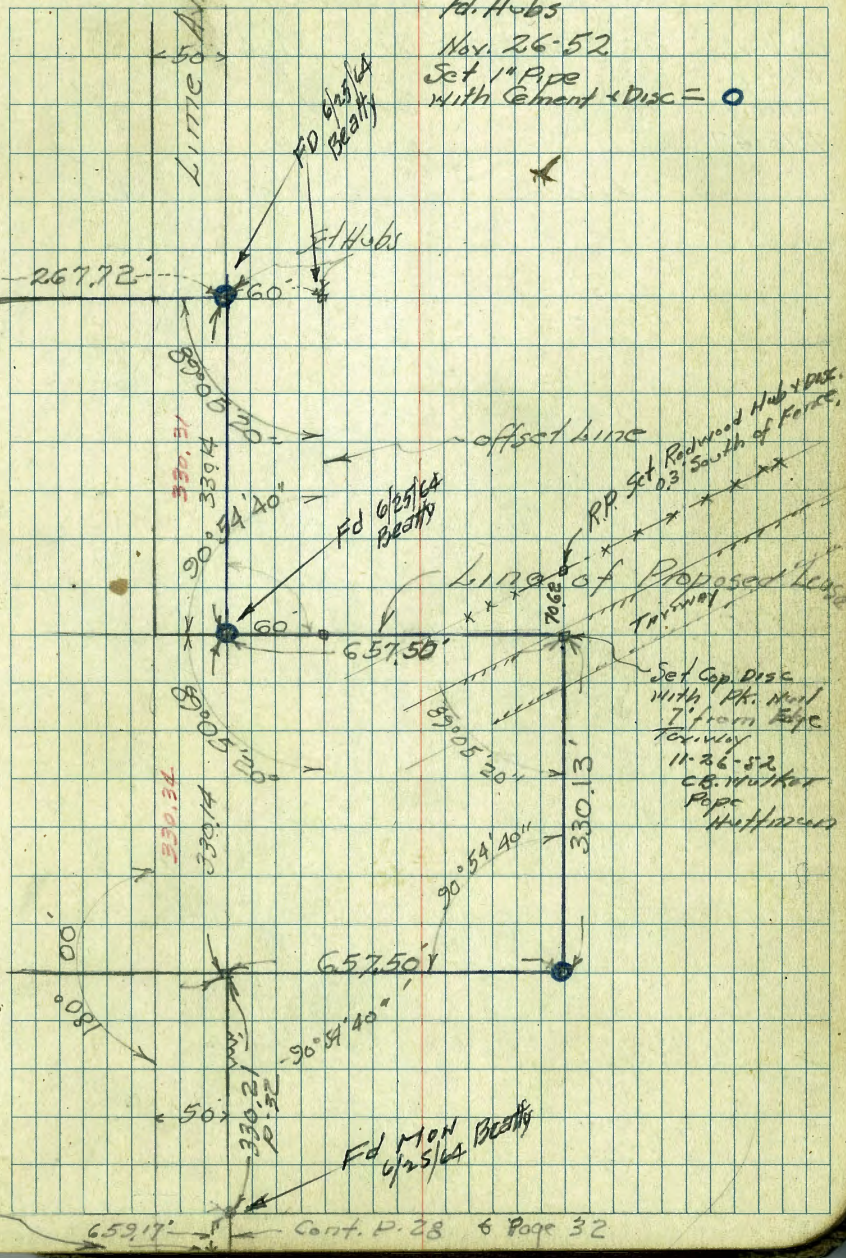 Fd. Hubs
Nov. 26-52
Set 1" Pipe
with Cement & Disc =
50
Lime Av
FD 6/25/64
Beatty
Set Hubs
267.72'
60'
89°05'20"
offset Line
330.31
330.14
90°54'40"
R.P. Set Redwood Hub & Disc.
0.3' South of Fence.
Fd 6/25/64
Beatty
Line of Proposed Lease
70.62
Taxiway
60'
657.50'
Set Cop. Disc
with Pk. Nail
7' from Edge
Taxiway
11-26-52
C.B. Mulker
Pope
Huffman
89°05'20"
89°05'20"
330.34
330.14
330.13'
90°54'40"
180°00'
657.50'
90°54'40"
330.21
P-32
50'
Fd Mon
6/25/64 Beatty
659.17'
Cont. P. 28 & Page 32